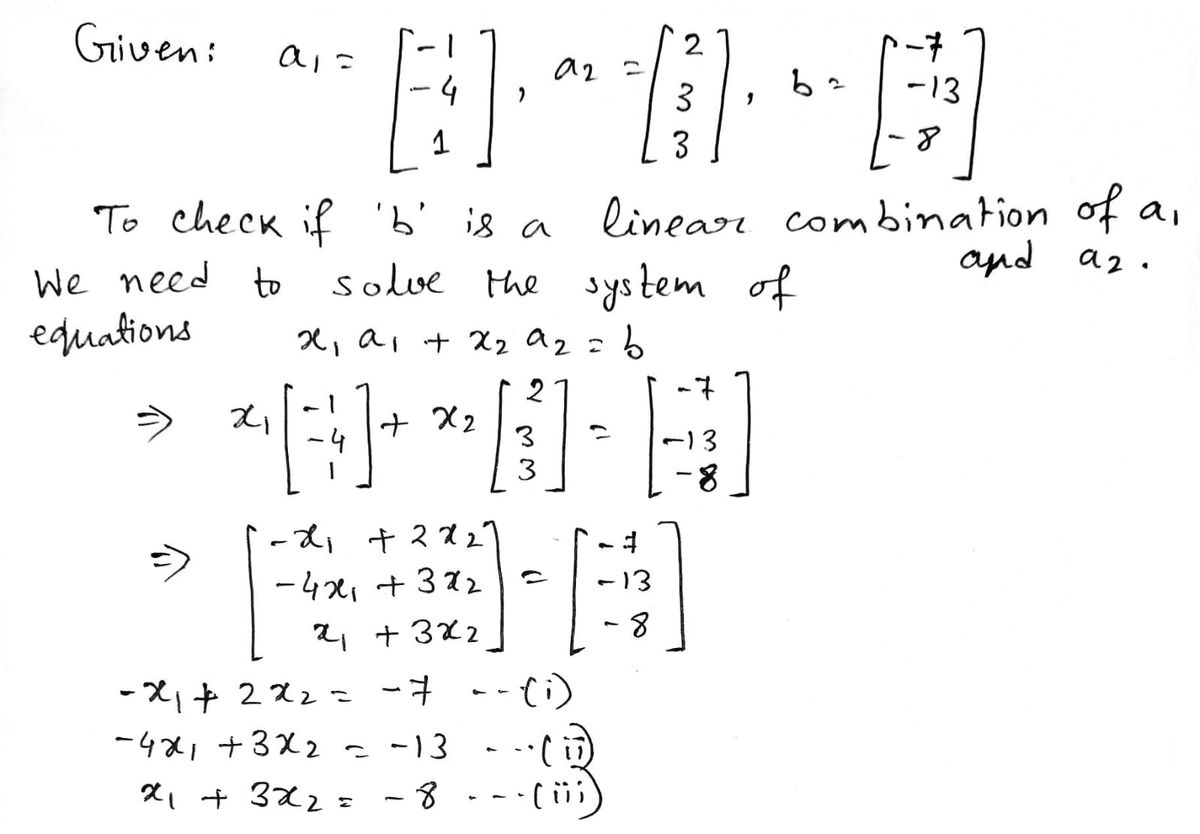 Given: a1 = [-1 -4 1], a2 = [2 3 3], b = [-7 -13 -8]
To check if 'b' is a linear combination of a1
and a2.
We need to solve the system of
equations x1 a1 + x2 a2 = b
⇒ x1 [-1 -4 1] + x2 [2 3 3] = [-7 -13 -8]
⇒ [-x1 + 2x2
-4x1 + 3x2
x1 + 3x2] = [-7 -13 -8]
-x1 + 2x2 = -7 --(i)
-4x1 + 3x2 = -13 ---(ii)
x1 + 3x2 = -8 ---(iii)